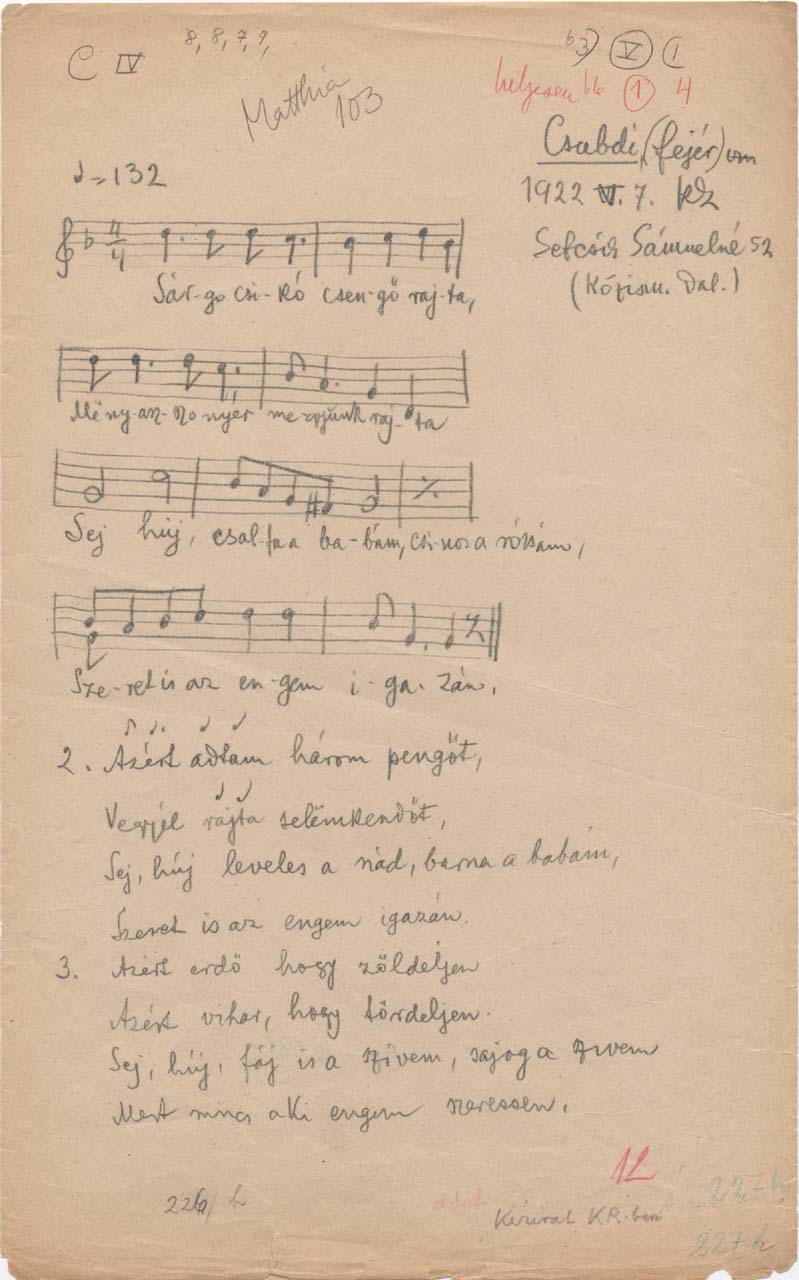 C IV
8, 8, 7, 9,
b3) V 1
Matthia
103
helyesen b6 1 4
Csabdi, (Fejér) vm
♩=132
1922 VI. 7. KZ
Sefcsik Sámuelné 52
(Közism. Dal.)
4/4
Sár-go csi-kó csen-gő raj-ta,
Mëny-an-nyér mërjünk raj-ta
Sej húj, csal-fa a ba-bám, csi-nos a rózsám,
Sze-ret is az en-gem i-ga-zán.
2. Azért adtam három pengőt,
Vegyél rajta selëmkendőt,
Sej, húj leveles a nád, barna a babám,
Szeret is az engem igazán.
3. Azért erdő hogy zöldeljen
Azért vihar, hogy tördeljen.
Sej, húj, fáj is a szivem, sajog a szivem
Mert nincs aki engem szeressen.
12
226/ h
Kézirat KR.-ben
227 h
227 h